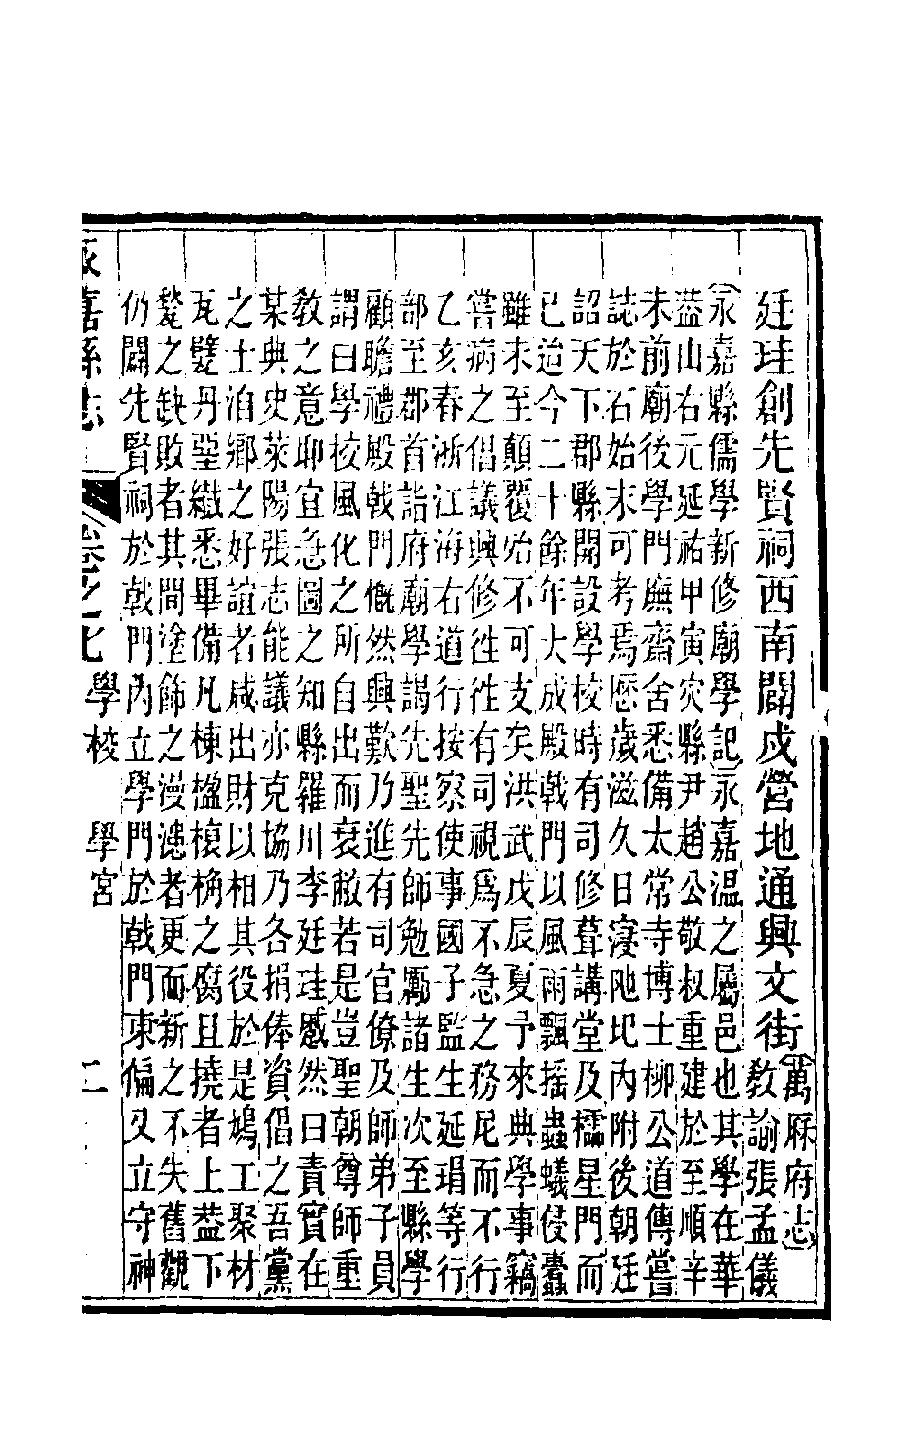 廷珪創先賢祠西南闢戍營地通興文街萬厤府志
教諭張孟儀
永嘉縣儒學新修廟學記永嘉溫之屬邑也其學在華
葢山右元延祐甲寅災縣尹趙公敬叔重建於至順辛
未前廟後學門廡齋舍悉備太常寺博士柳公道傳嘗
誌於石始末可考焉歷歲滋久日寖阤圮內附後朝廷
詔天下郡縣開設學校時有司修葺講堂及櫺星門而
已迨今二十餘年大成殿戟門以風雨飄搖蟲蟻侵蠹
雖未至顛覆殆不可支矣洪武戊辰夏予來典學事竊
嘗病之倡議興修往往有司視爲不急之務尼而不行
乙亥春浙江海右道行按察使事國子監生延瑁等行
部至郡首詣府廟學謁先聖先師勉勵諸生次至縣學
顧瞻禮殿戟門慨然興歎乃進有司官僚及師弟子員
謂曰學校風化之所自出而衰敝若是豈聖朝尊師重
教之意耶宜急圖之知縣羅川李廷珪慼然曰責實在
某典史萊陽張志能議亦克協乃各捐俸資倡之吾黨
之士洎鄉之好誼者咸出財以相其役於是鳩工聚材
瓦甓丹堊繼悉畢備凡棟楹榱桷之腐且撓者上葢下
甃之缺敗者其間塗飾之漫漶者更而新之不失舊觀
仍闢先賢祠於戟門內立學門於戟門東偏又立守神
永嘉縣志 卷之七 學校 學宮 二